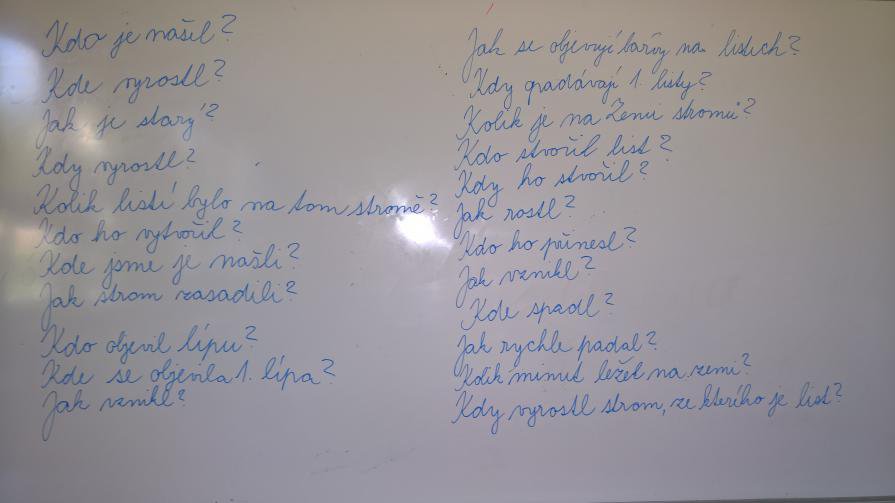 Kdo je našel?
Kde vyrostl?
Jak je starý?
Kdy vyrostl?
Kolik listí bylo na tom stromě?
Kdo ho vytvořil?
Kde jsme je našli?
Jak strom zasadili?
Kdo objevil lípu?
Kde se objevila 1. lípa?
Jak vznikl?
Jak se objevují barvy na listech?
Kdy opadávají 1. listy?
Kolik je na Zemi stromů?
Kdo stvořil list?
Kdy ho stvořil?
Jak rostl?
Kdo ho přinesl?
Jak vznikl?
Kde spadl?
Jak rychle padal?
Kolik minut ležel na zemi?
Kdy vyrostl strom, ze kterího je list?